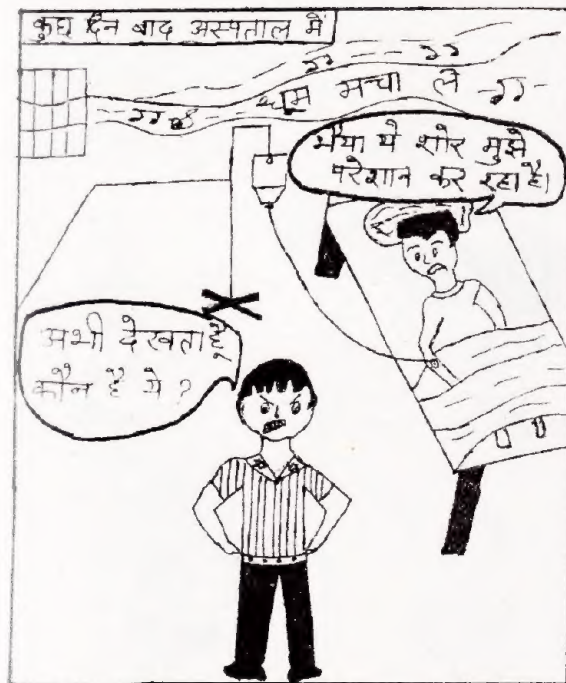 कुछ दिन बाद अस्पताल में
धूम मच्चा ले
भैया ये शोर मुझे
परेशान कर रहा है।
अभी देखता हूँ
कौन है ये ?